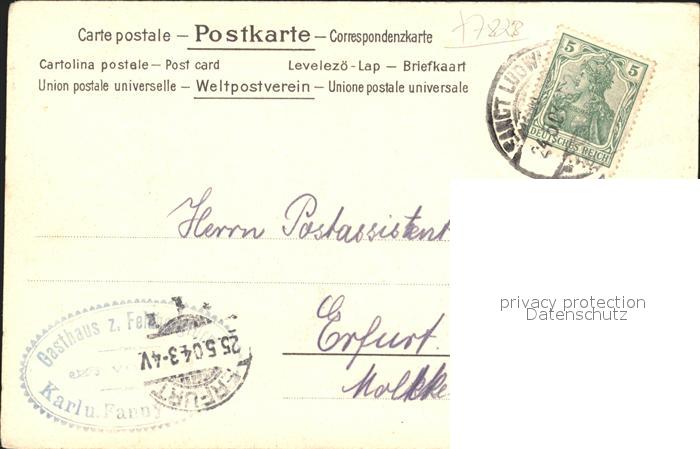 Carte postale — Postkarte — Correspondenzkarte
17828
Cartolina postale — Post card Levelezö-Lap — Briefkaart
Union postale universelle — Weltpostverein — Unione postale universale
5 5
DEUTSCHES REICH
SANCT LUDW
Herrn Postassistent
privacy protection
Datenschutz
Erfurt.
Gasthaus z.
25.5.04.3-4V.
ERFURT
Karl u. Fanny